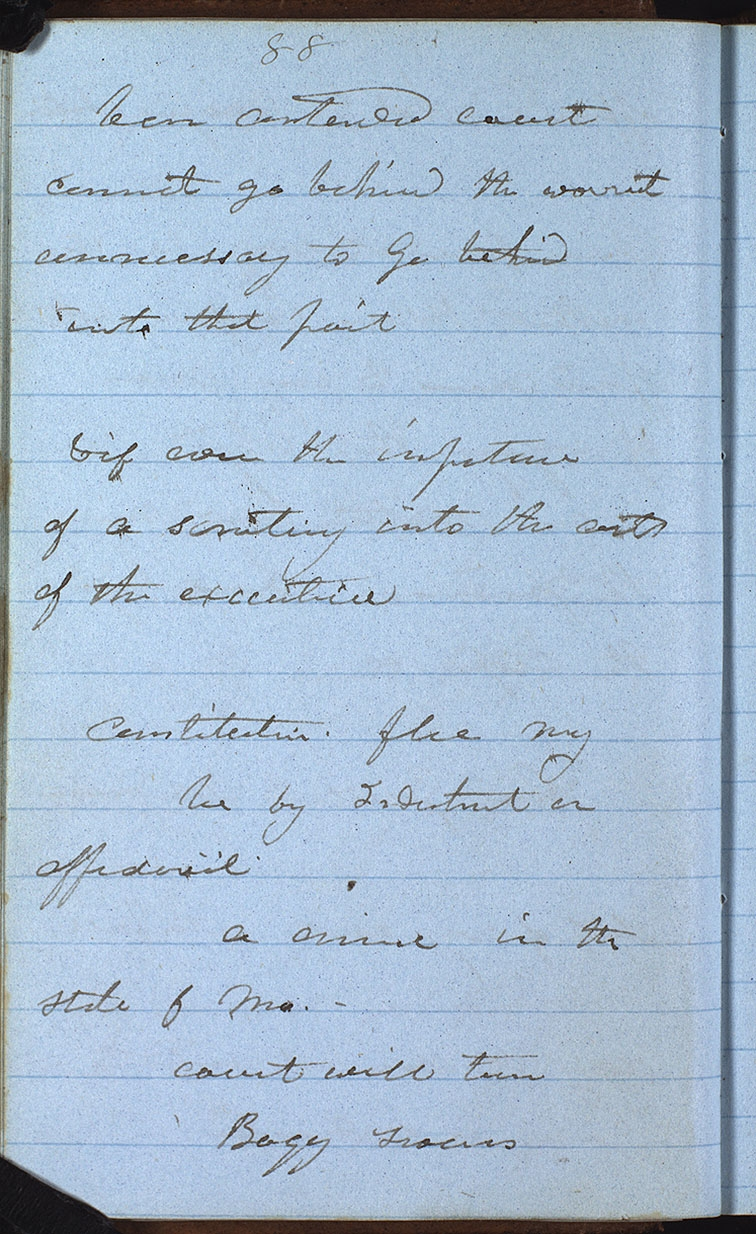 88
been contended court
cannot go behind the warrant
unnecessary to Go behind
into that point
of a scrutiny into the acts
of the executive
Constitution. flee
be by Indictment or
affidavit
a crime in the
State of Mo. -
court will turn